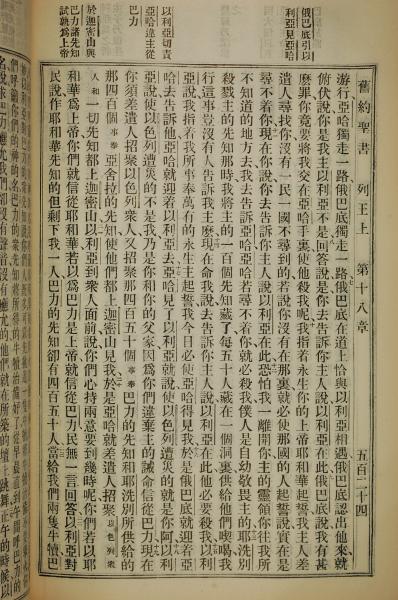 舊約聖書 列王上 第十八章 五百二十四
俄巴底引以
利亞見亞哈
以利亞切責
亞哈違主從
巴力
於迦密山與
巴力諸先知
試孰爲上帝
游行亞哈獨走一路俄巴底獨走一路俄巴底在道上恰與以利亞相遇俄巴底認出他來就
俯伏說你是我主以利亞不是回答說是你去告訴你主人說以利亞在此俄巴底說我有甚
麼罪你竟要將我交在亞哈手裏使他殺我呢我指着永生你的上帝耶和華起誓我主人差
遣人尋找你沒有一民一國不尋到的若說你沒有在那裏就必使那國的人起誓說實在是
尋不着你現在你說你去告訴你主人說以利亞在此恐怕我一離開你主的靈領你往我所
不知道的地方去我去告訴亞哈亞哈若尋不着你就必殺我僕人是自幼敬畏主的耶洗別
殺戮主的先知那時我將主的一百個先知藏了每五十人藏在一個洞裏供給他們喫喝我
行這事豈沒有人告訴我主麼現在你命我說去告訴你主人說以利亞在此他必要殺我以利
亞說我指着我所事奉萬有的永生主起誓我今日必使亞哈得見我於是俄巴底就迎着亞
哈去告訴他亞哈就迎着以利亞去亞哈見了以利亞就說使以色列遭災的就是你阿以利
亞說使以色列遭災的不是我乃是你和你的父家因爲你們違棄主的誡命信從巴力現在
你須差遣人招聚以色列衆人又招聚那四百五十個事奉巴力的先知和耶洗別所供給的
那四百個事奉亞舍拉的先知使他們都上迦密山見我於是亞哈就差遣人招聚以色列衆
人和一切先知都上迦密山以利亞到衆人面前說你們心持兩意要到幾時呢你們若以耶
和華爲上帝你們就信從耶和華若以爲巴力是上帝就信從巴力民無一言回答以利亞對
民說作耶和華先知的但剩下我一人巴力的先知卻有四百五十人當給我們兩隻牛犢巴